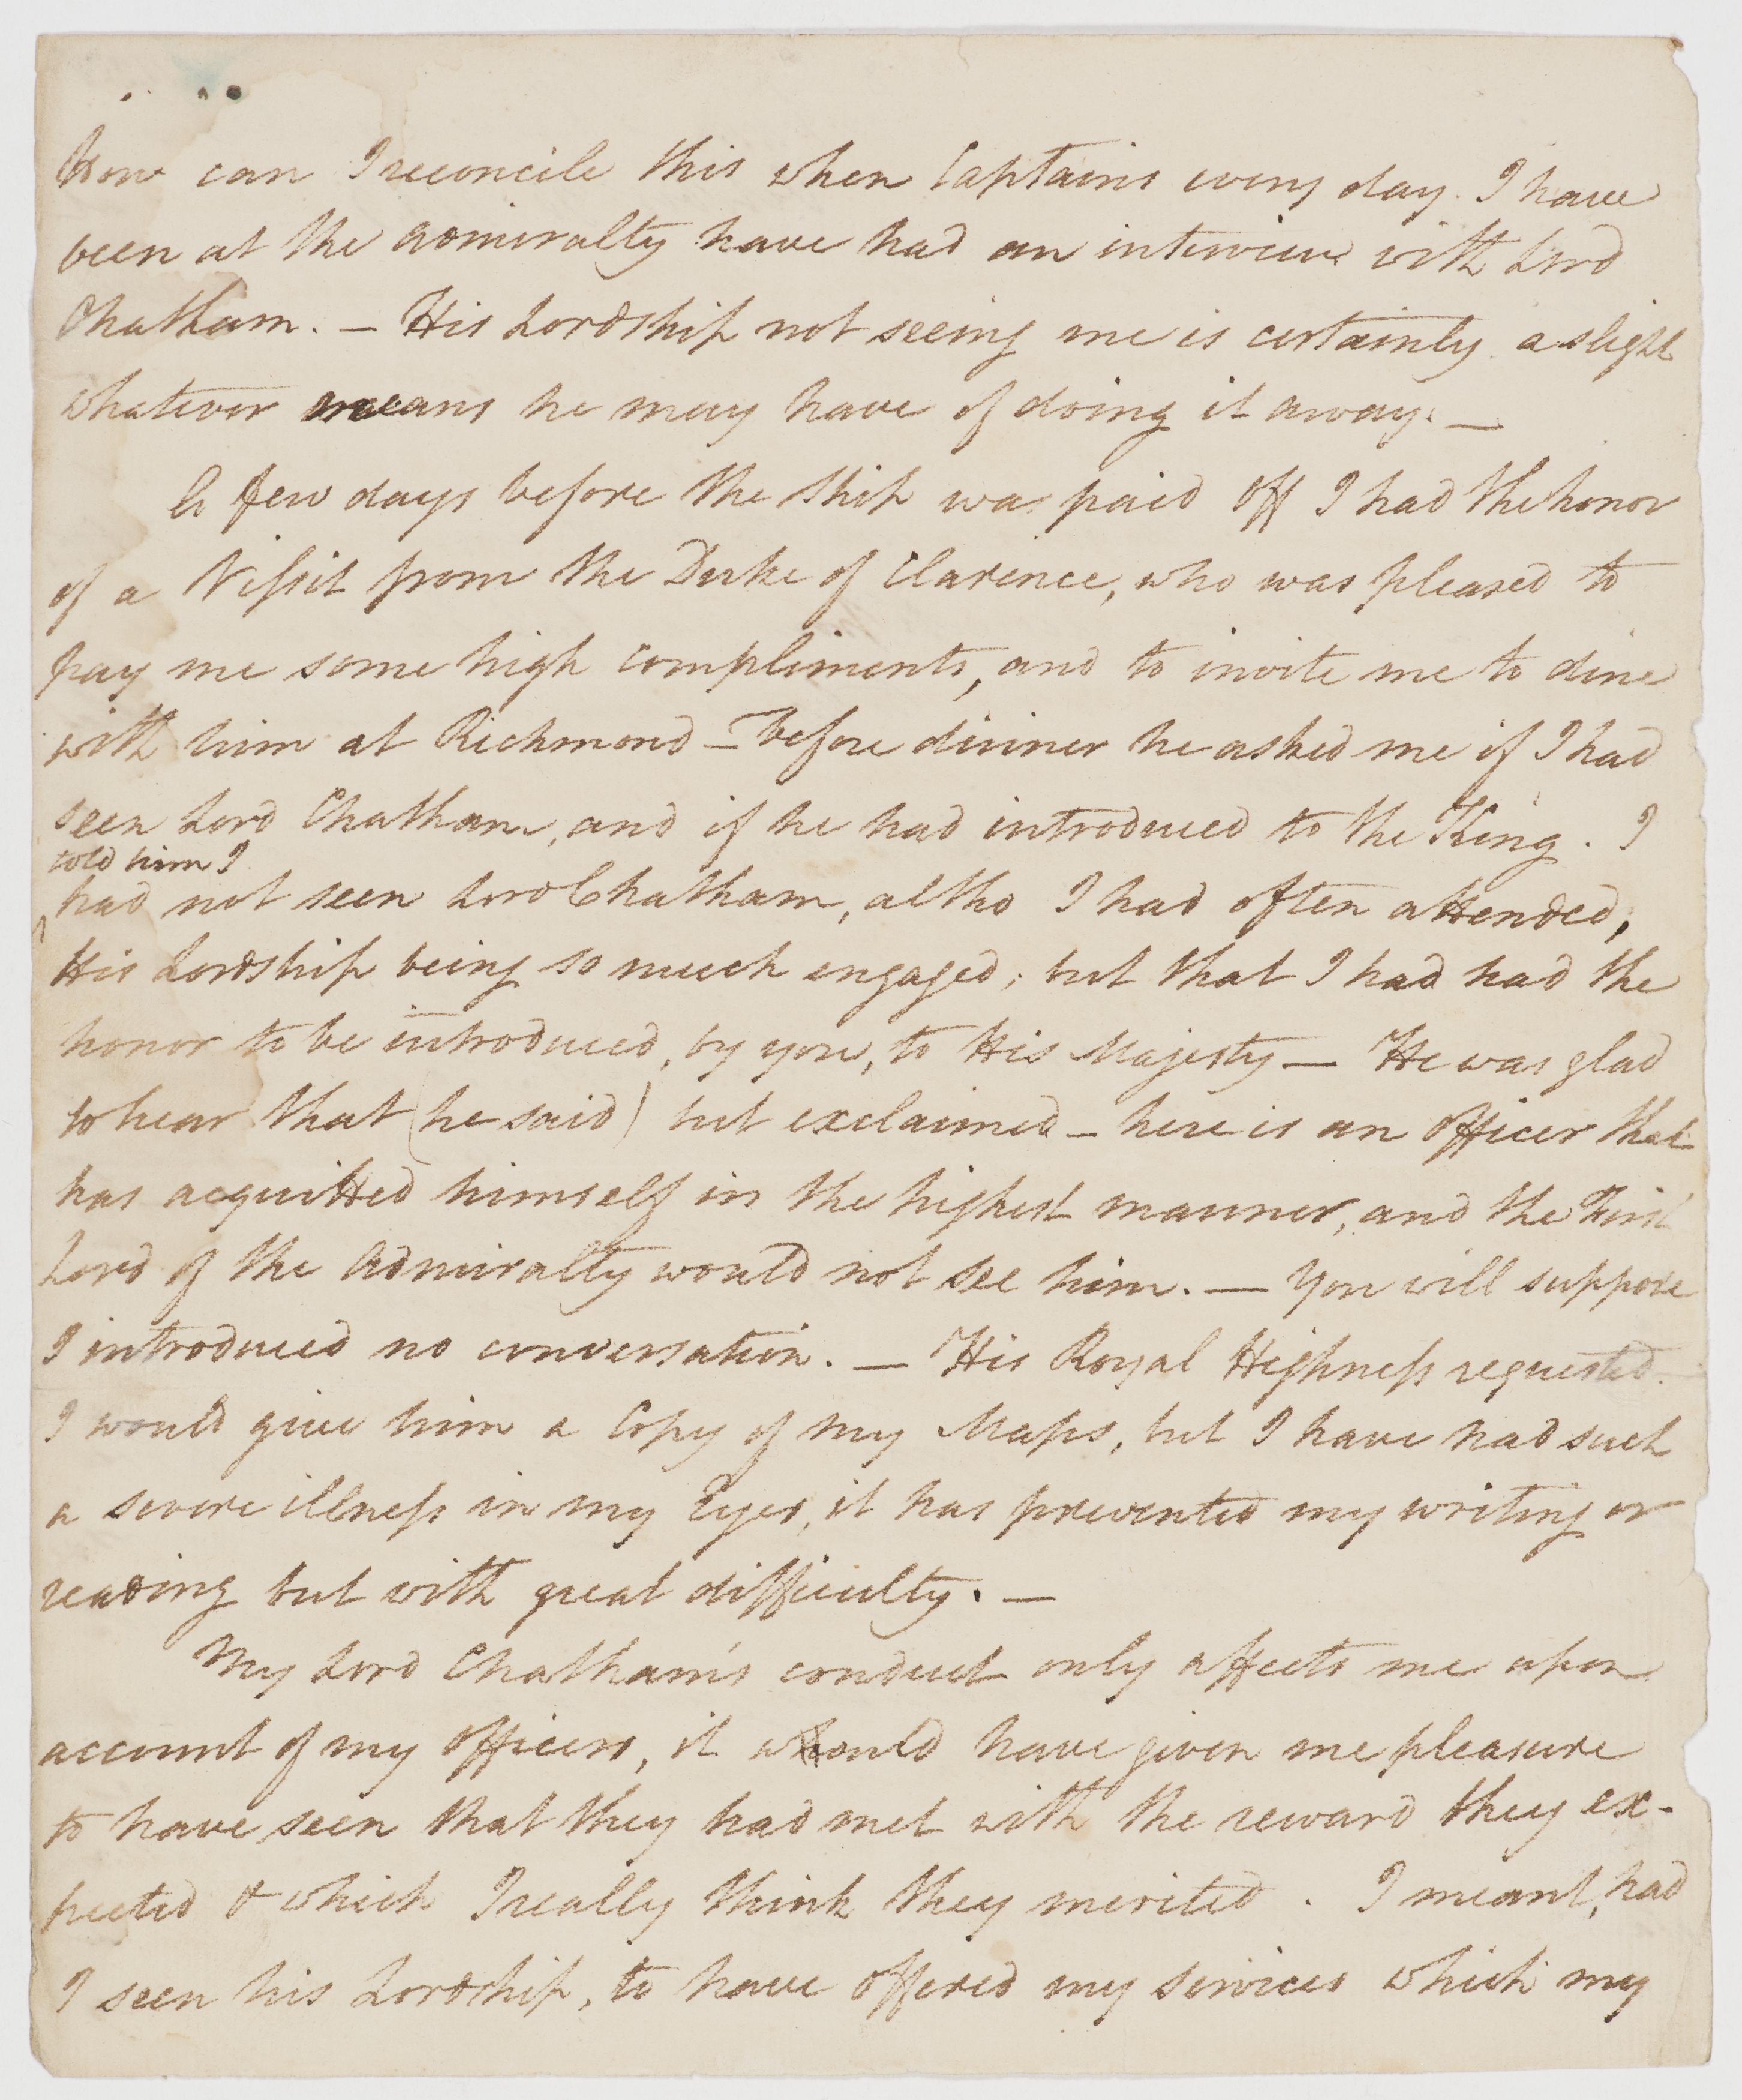 how can I reconcile this when Captains every day I have
been at the Admiralty have had an interview with Lord
Chatham. — His Lordship not seeing me is certainly a slight
whatever means he may have of doing it away. —
A few days before the Ship was paid off I had the honor
of a Vissit from the Duke of Clarence, who was pleased to
pay me some high compliments, and to invite me to dine
with him at Richmond — Before dinner he asked me if I had
seen Lord Chatham, and if he had introduced to the King. I
told him I
had not seen Lord Chatham, altho I had often attended,
His Lordship being so much engaged; but that I had had the
honor to be introduced, by you, to His Majesty — He was glad
to hear that (he said) but exclaimed — here is an Officer that
has acquitted himself in the highest manner, and the First
Lord of the Admiralty would not see him. — You will suppose
I introduced no conversation. — His Royal Highness requested
I would give him a Copy of my Maps, but I have had such
a severe illness in my Eyes, it has prevented my writing or
reading but with great difficulty. —
My Lord Chatham's conduct only affects me upon
account of my Officers, it would have given me pleasure
to have seen that they had met with the reward they ex-
pected & which I really think they merited. I meant, had
I seen his Lordship, to have offered my services which my